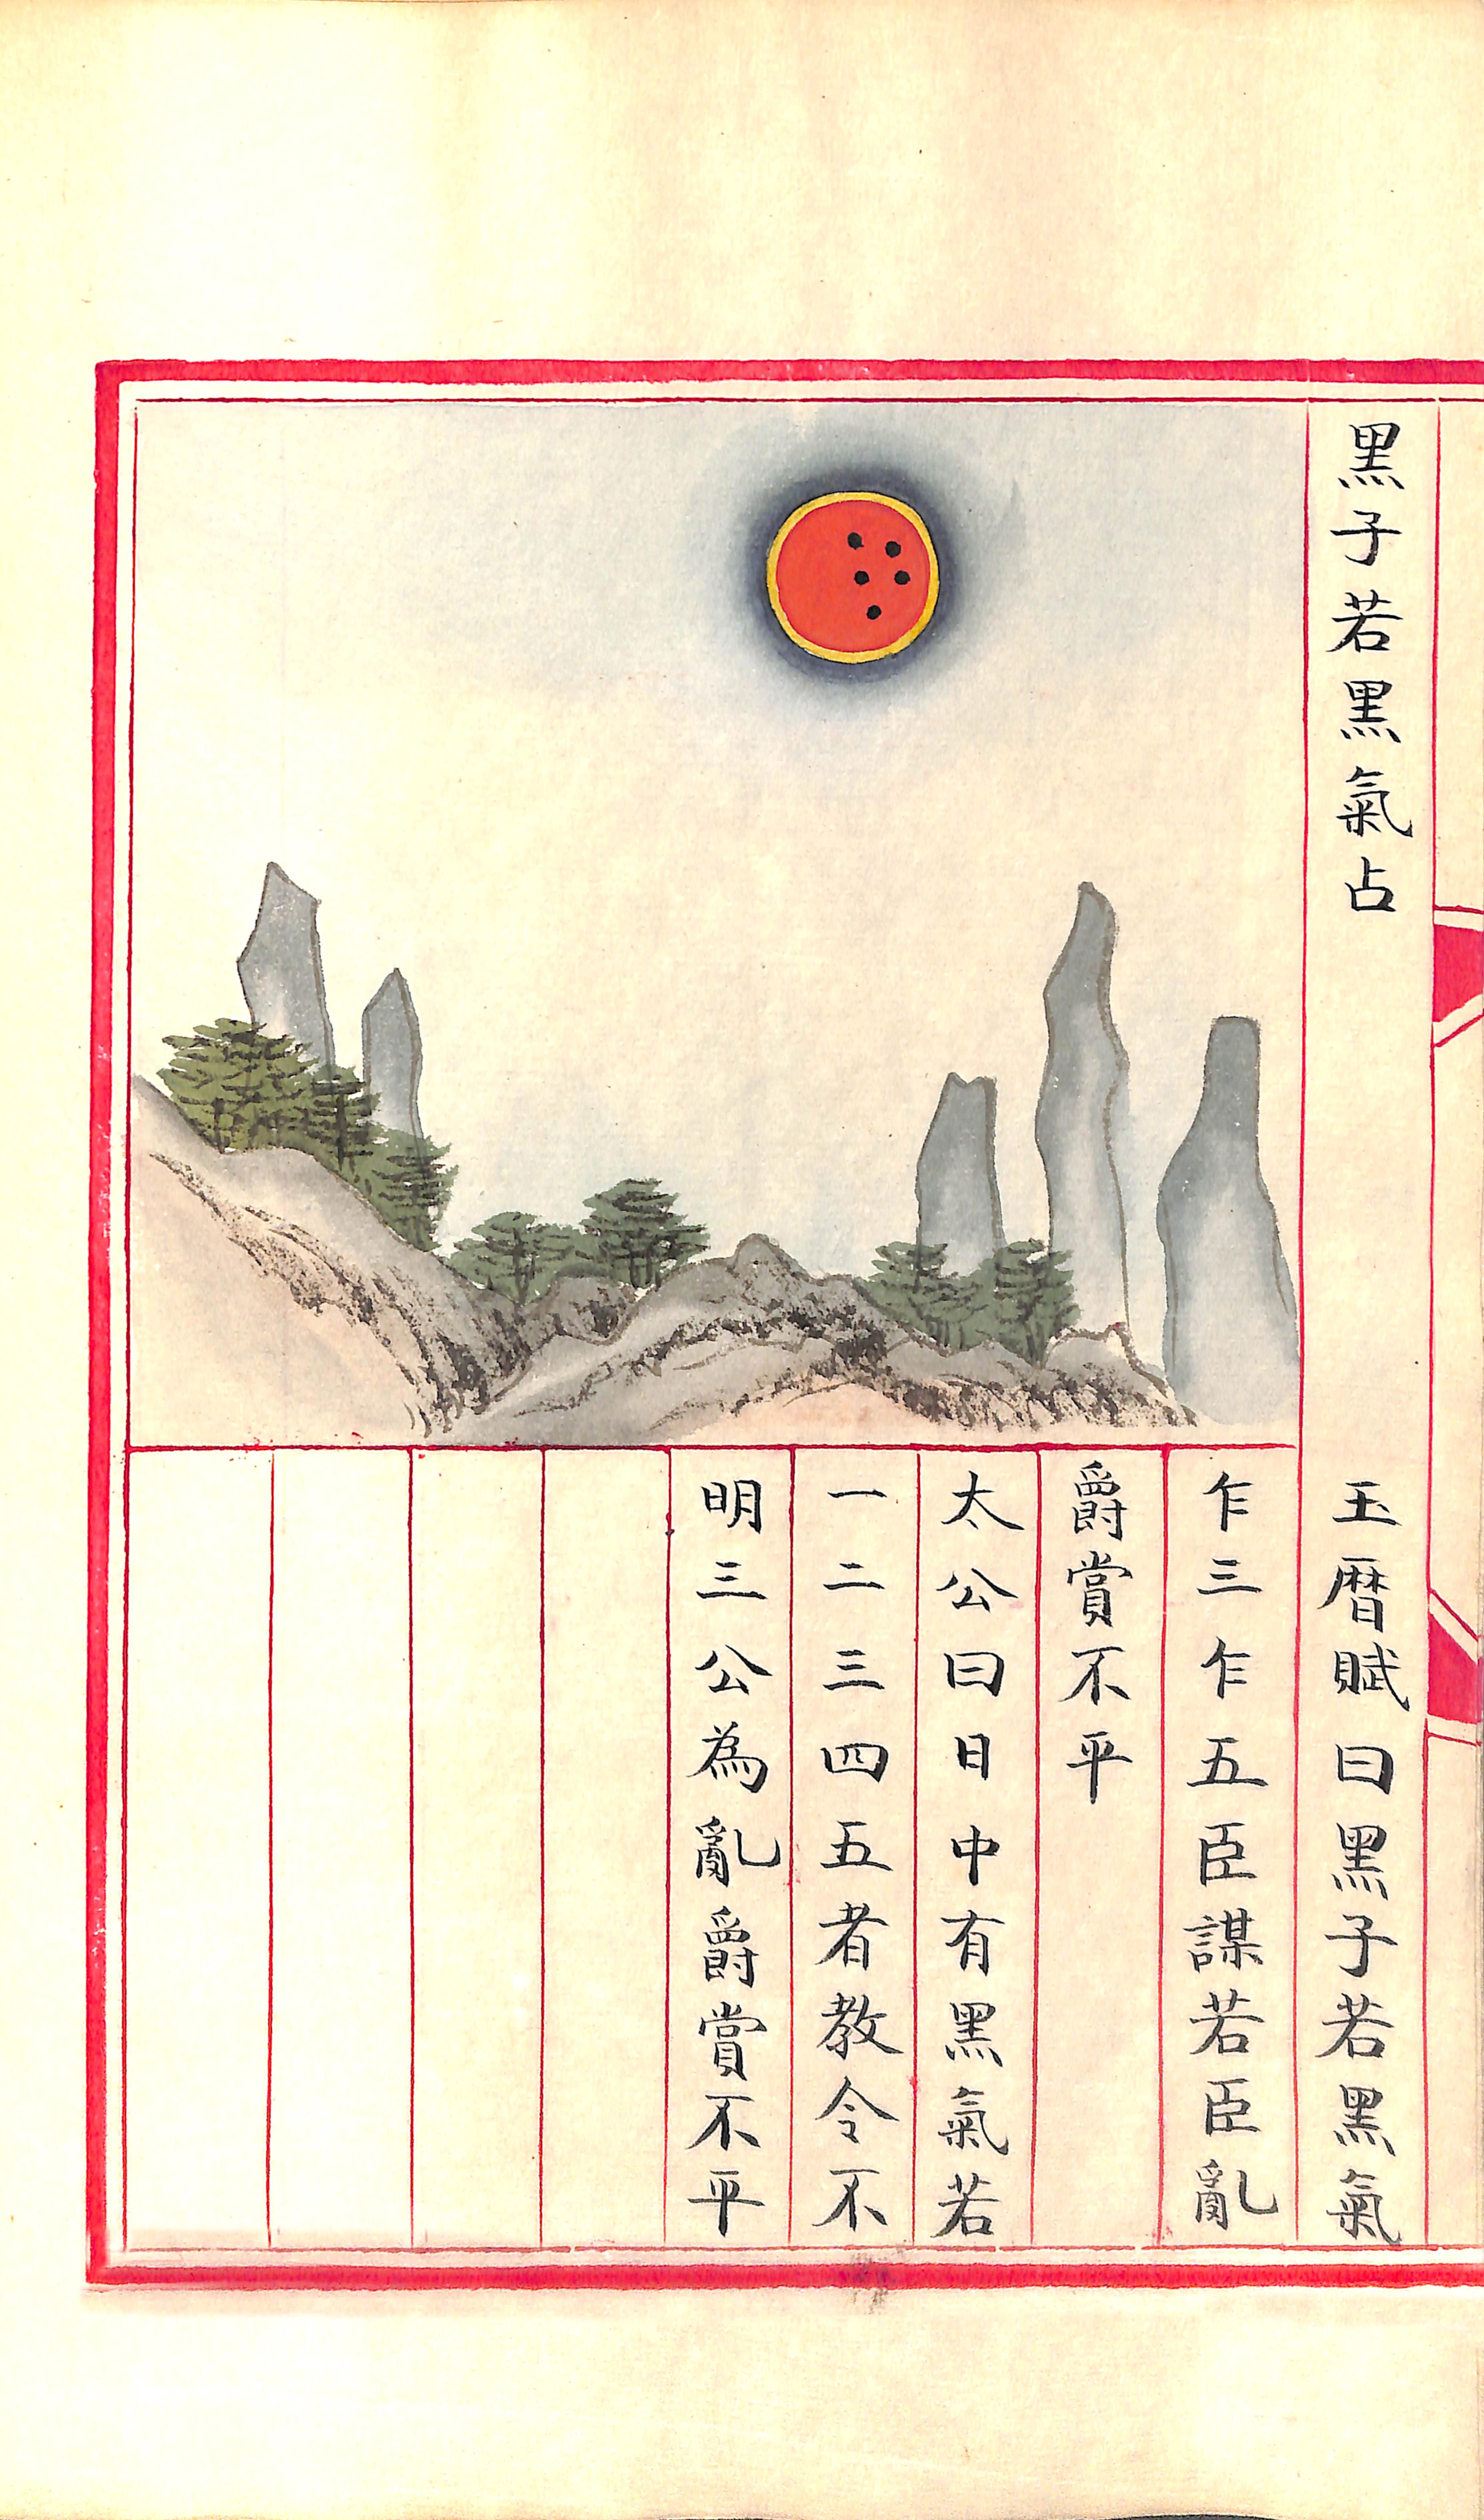 黒子若黒氣占
玉暦賦曰黒子若黒氣
乍三乍五臣謀若臣亂
爵賞不平
太公曰日中有黒氣若
一二三四五者教令不
明三公為亂爵賞不平